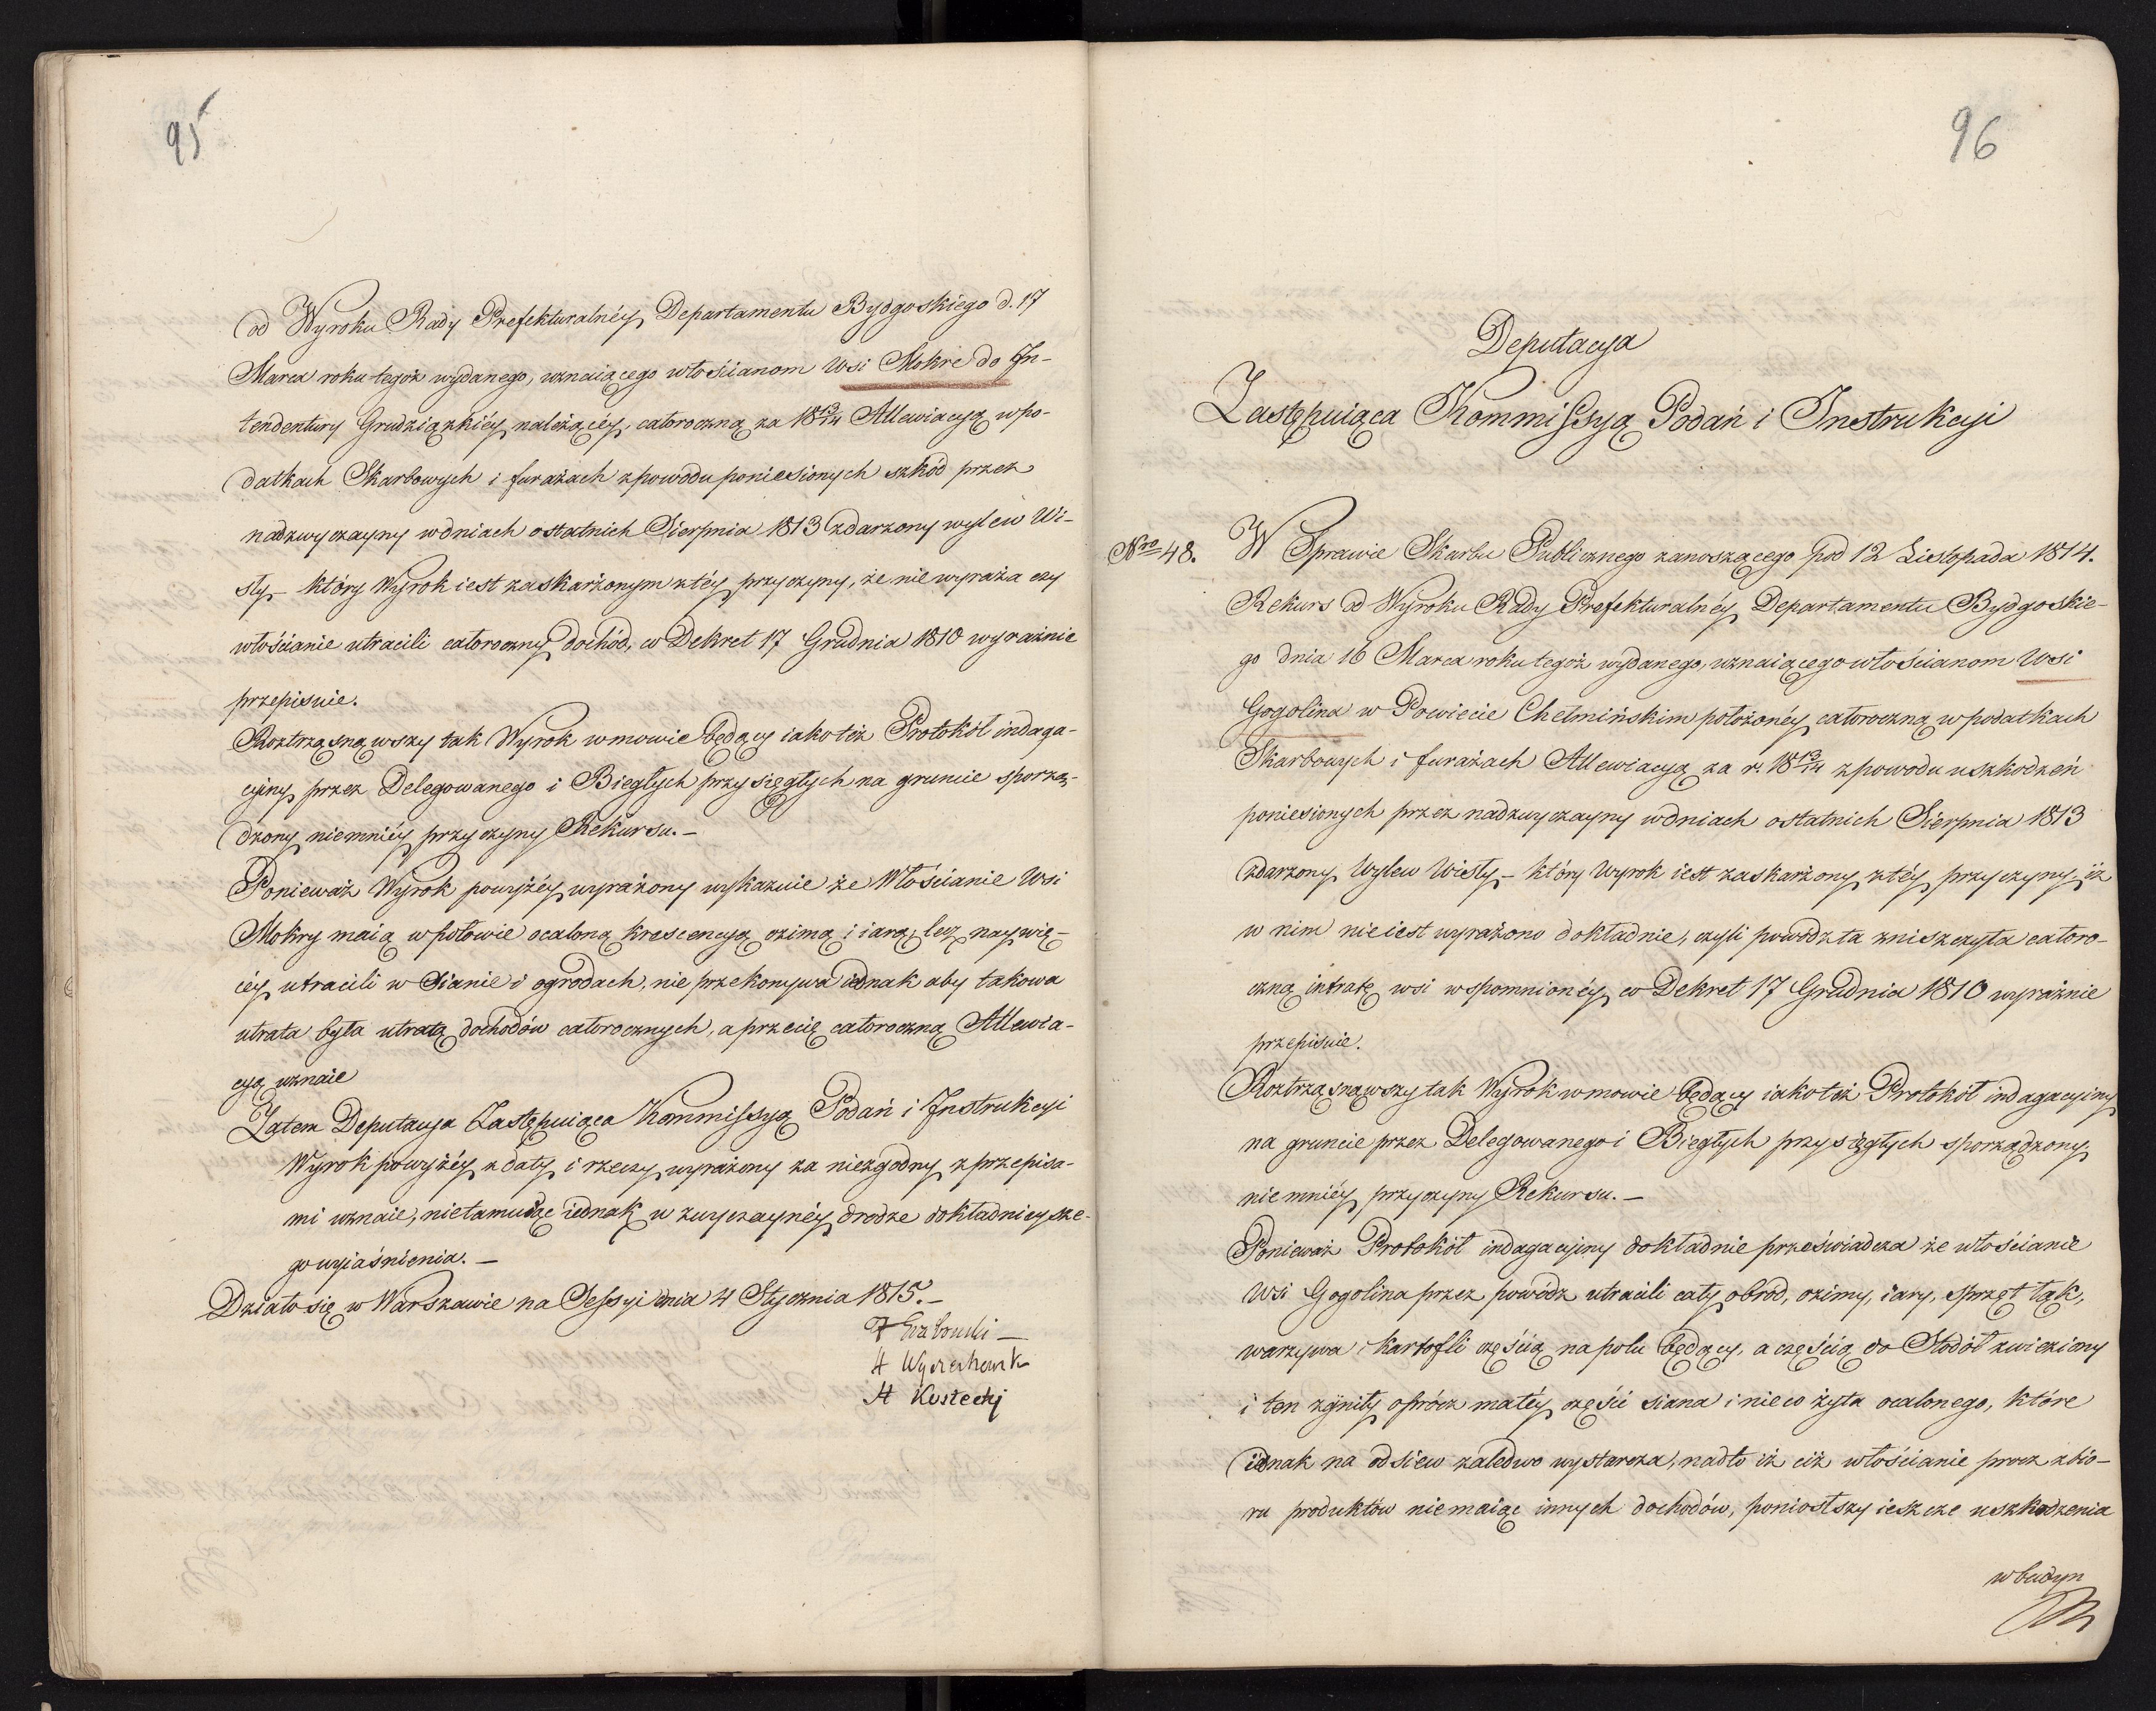 95
od Wyroku Rady Prefekturalnéy Departamentu Bydgoskiego d. 17
Marca roku tegoż wydanego, uznaiącego włościanom Wsi Mokre do In-
tendentury Grudziązkiéy należącéy, całoroczną za 18 13/14 Allewiacyą wpo-
datkach Skarbowych i furażach zpowodu poniesionych szkód przez
nadzwyczayny wdniach ostatnich Sierpnia 1813 zdarzony wylew Wi-
sły – który Wyrok iest zaskarżonym ztéy przyczyny, że nie wyraża czy
włościanie utracili całoroczny dochód, co Dekret 17 Grudnia 1810 wyraźnie
przepisuie.
Roztrząsnąwszy tak Wyrok wmowie będący iakoteż Protokół indaga-
cyiny przez Delegowanego i Biegłych przysięgłych na gruncie sporzą-
dzony niemniéy przyczyny Rekursu. –
Ponieważ Wyrok powyżéy wyrażony wykazuie że Włościanie Wsi
Mokry maią wpołowie ocaloną krescencyą ozimą i iarą, lecz naywię-
céy utracili w Sianie i ogrodach, nie przekonywa iednak aby takowa
utrata była utratą dochodów całorocznych, a przecię całoroczną Allewia-
cyą uznaie
Zatem Deputacya Zastępuiąca Kommissyą Podań i Instrukcyi
Wyrok powyżéy z daty i rzeczy wyrażony za niezgodny z przepisa-
mi uznaie, nietamuiąc iednak w zwyczaynéy drodze dokładnieysze-
go wyiaśnienia. –
Działo się w Warszawie na Sessyi dnia 4 Stycznia 1815. –
A Kostecki
96
Deputacya
Zastępuiąca Kommissyą Podań i Instrukcyi
Nro 48. W Sprawie Skarbu Publicznego zanoszącego pod 12 Listopada 1814.
Rekurs od Wyroku Rady Prefekturalnéy Departamentu Bydgoskie-
go dnia 16 Marca roku tegoż wydanego, uznaiącego włościanom Wsi
Gogolina w Powiecie Chełmińskim położonéy całoroczną w podatkach
Skarbowych i furażach Allewiacyą za r. 18 13/14 z powodu uszkodzeń
poniesionych przez nadzwyczayny wdniach ostatnich Sierpnia 1813
zdarzony Wylew Wisły – który Wyrok iest zaskarżony ztéy przyczyny, iż
w nim nieiest wyrażono dokładnie, czyli powódź ta zniszczyła całoro-
czną intratę wsi wspomnionéy, co Dekret 17 Grudnia 1810 wyraźnie
przepisuie.
Roztrząsnąwszy tak Wyrok wmowie będący iakoteż Protokół indagacyiny
na gruncie przez Delegowanego i Biegłych przysięgłych sporządzony
niemniéy przyczyny Rekursu. –
Ponieważ Protokół indagacyiny dokładnie przeświadcza że włościanie
Wsi Gogolina przez powódź utracili cały obród, ozimy, iary, sprzęt łąk,
warzywa i kartofli częścią na polu będący, a częścią do Stodół zwieziony
i ten zgniły oprócz małéy części siana i nieco żyta ocalonego, które
iednak na odsiew zaledwo wystarcza, nadto iż ciż włościanie procz zbio-
ru produktów niemaiąc innych dochodów, poniosłszy ieszcze uszkodzenia
wbudyn